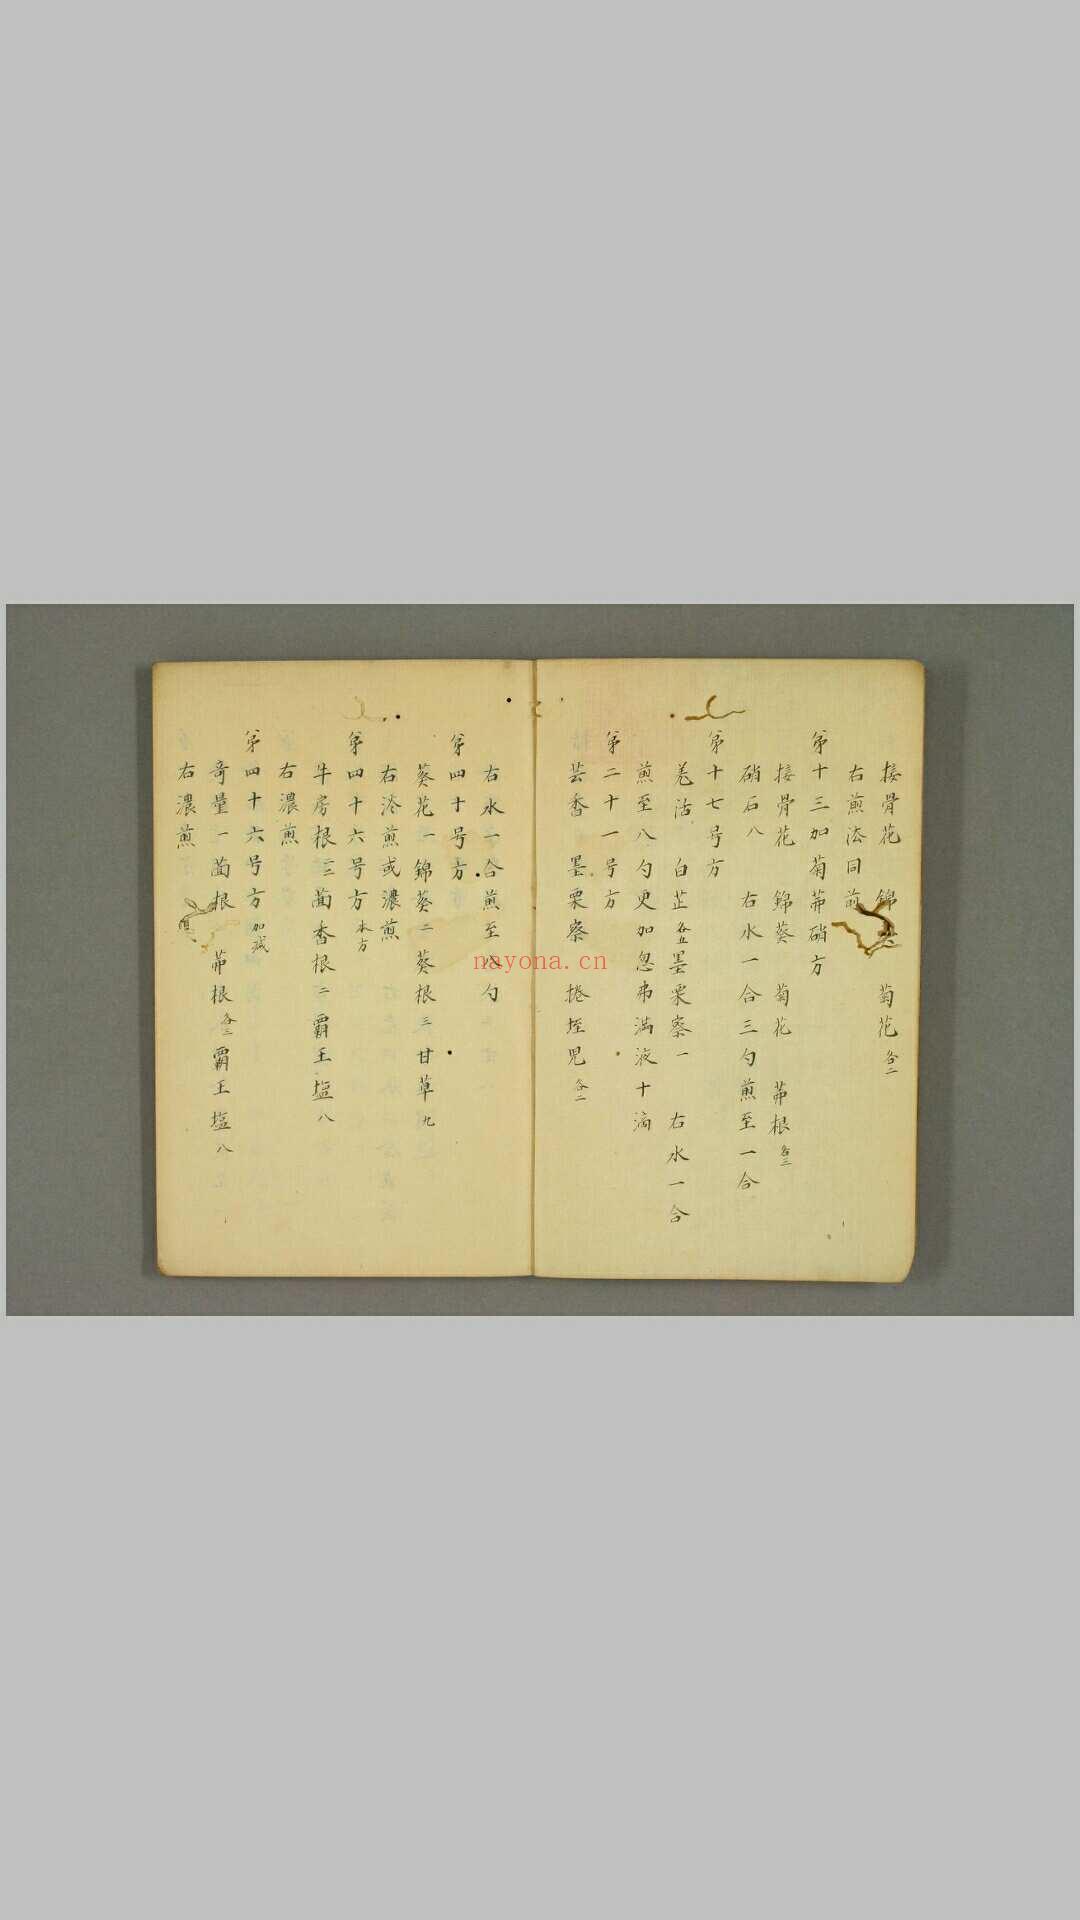 接骨花 錦 菊花各二
右煎法同前
第十三加菊茀硝方
接骨花 錦葵 菊花 茀根各三
硝石八 右水一合三勺煎至一合
第十七号方
羌活 白芷各五 墨栗察一 右水一合
煎至八勺更加忽弗満液十滴
第二十一号方
芸香 墨栗察 捲垤児各二
右水一合煎至八勺
第四十号方
葵花一錦葵二葵根三甘草九
右泡煎或濃煎
第四十六号方本方
牛房根三 茴香根二覇王塩八
右濃煎
第四十六号方加减
奇量一茴根 茀根各三覇王塩八
右濃煎
nayona.cn